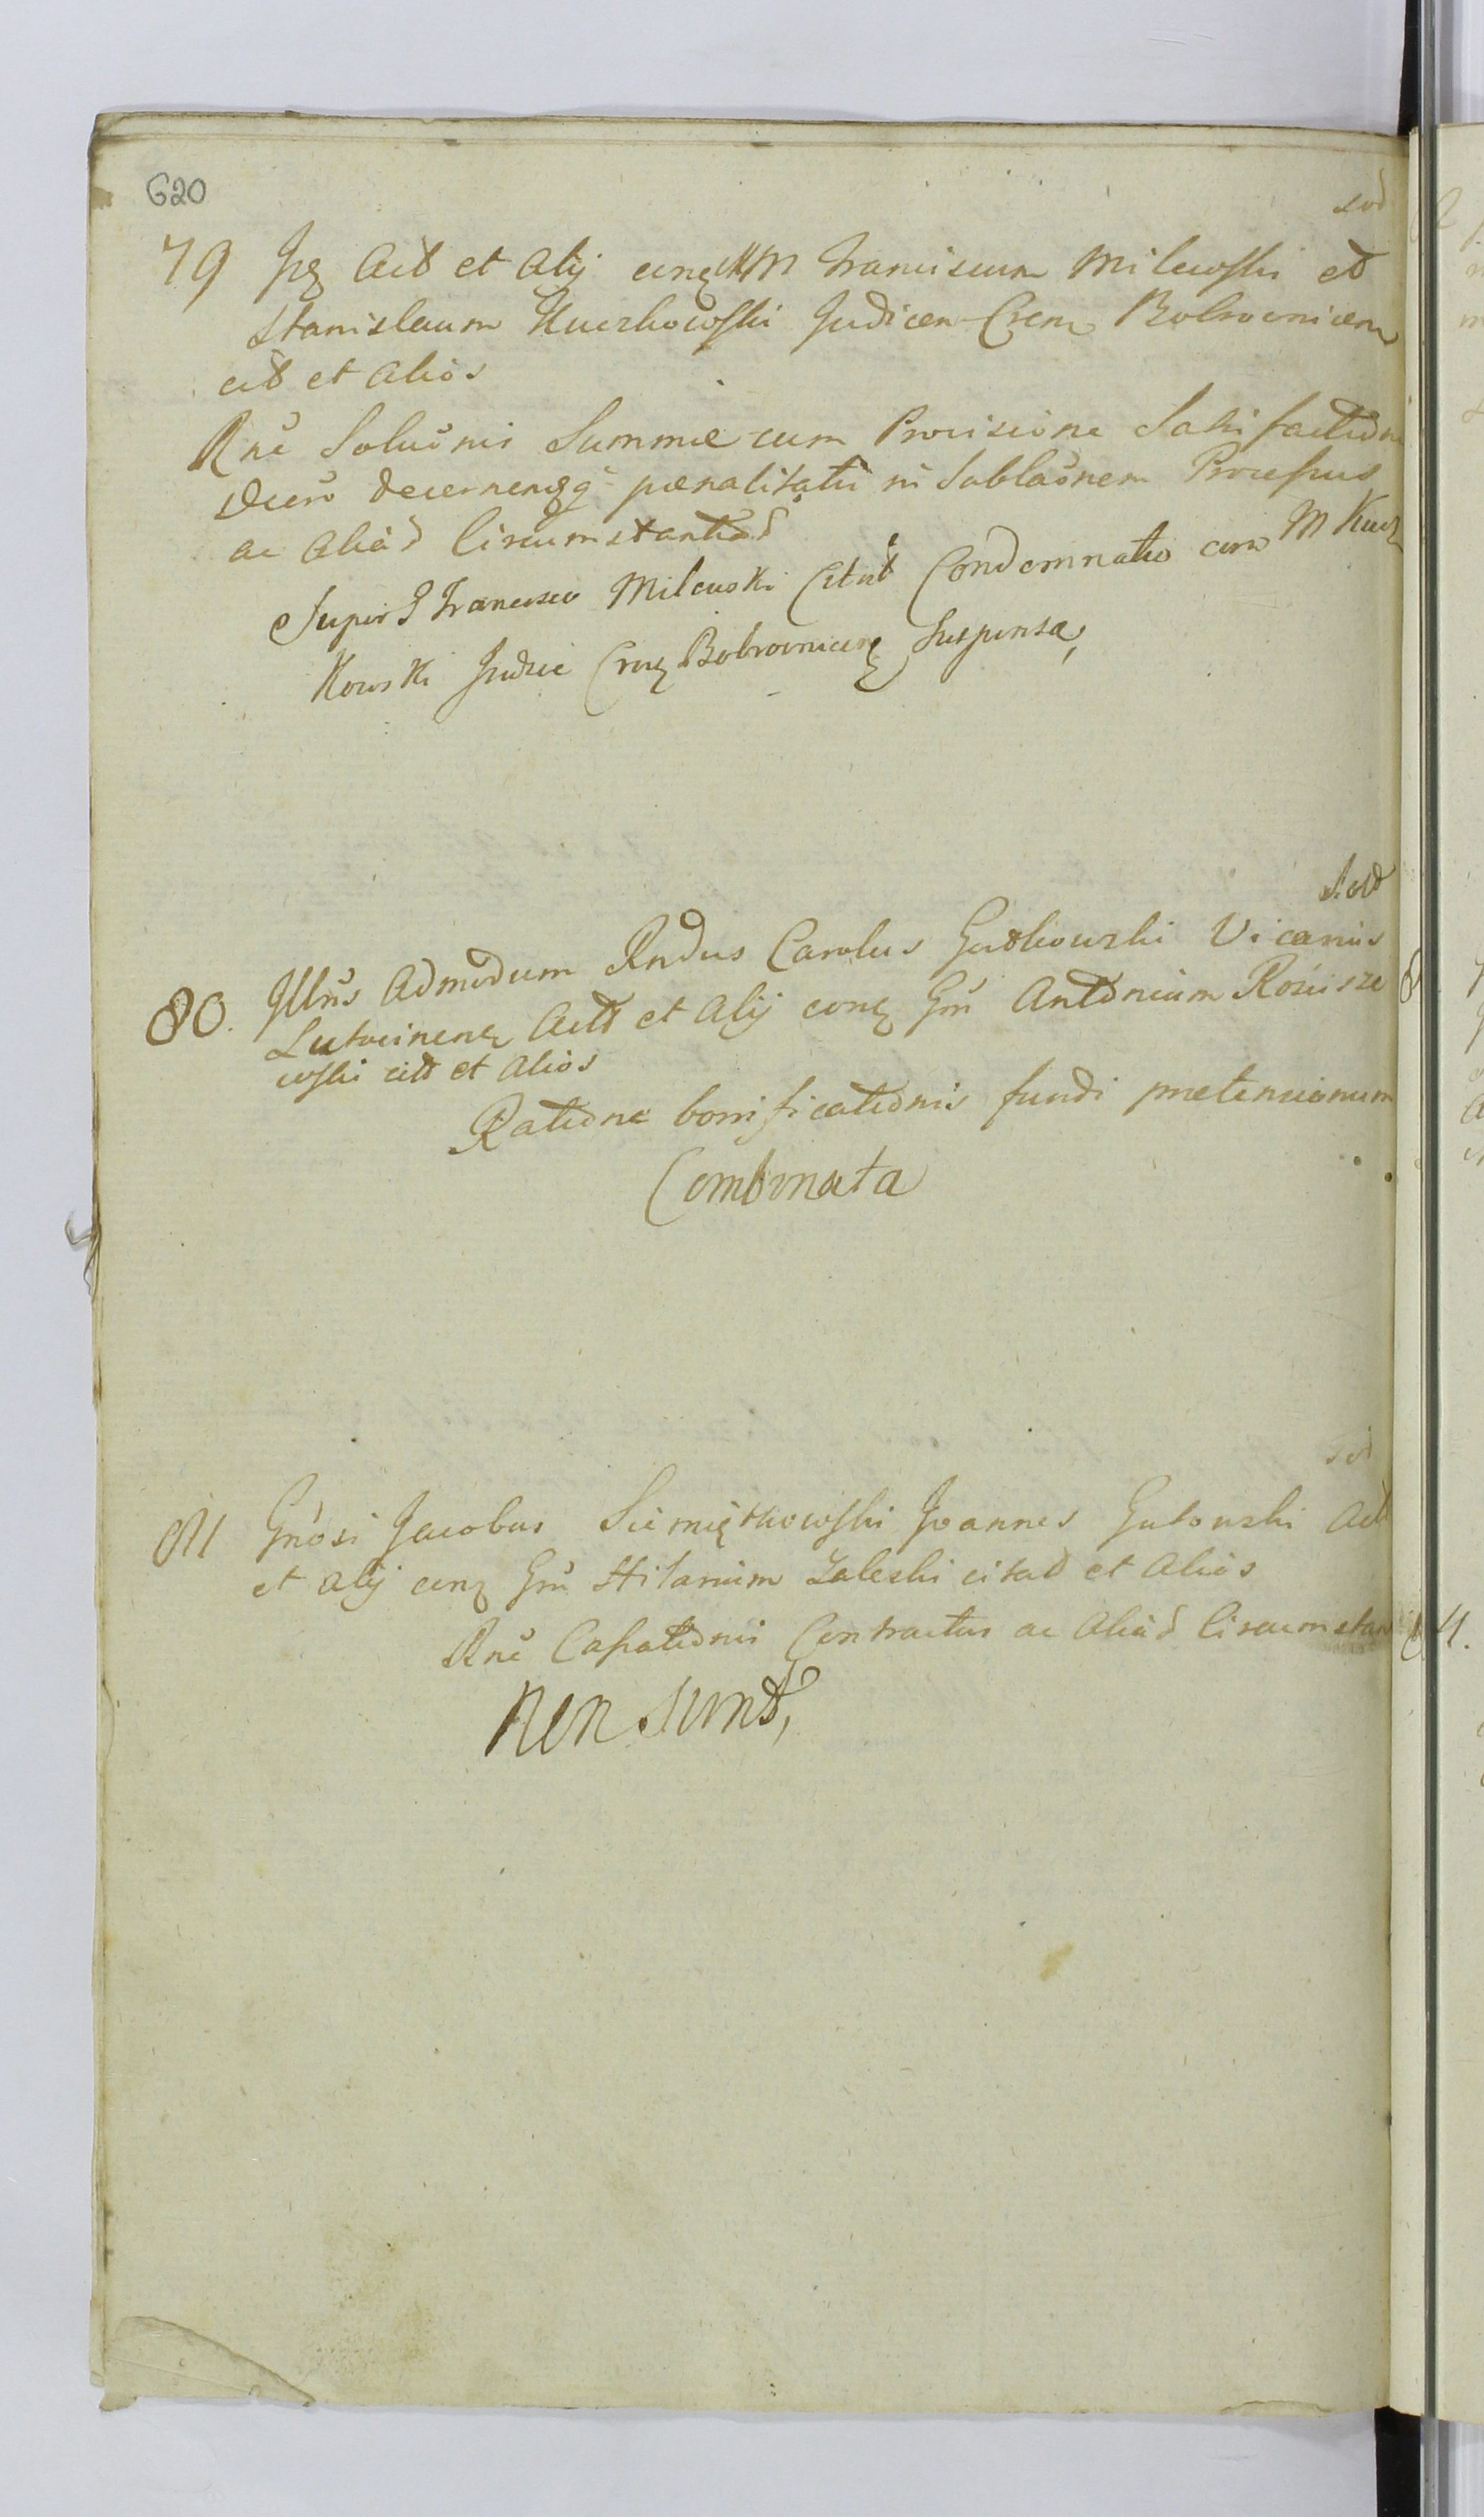 620
sod
79 Jz Act et Alij conz MM Franciscum Milewski et
Stanislaum Kuczkowski Judicem Crem Bobrovnicem
cit et Alios
Rne Soluõnis Summae cum Provisione Satisfactidni
decernenz poenalitatu ni Sublaõnem Processus
ac Aliad Circumstantiad
Super G Francisco Milewski Citat Condemnatio cum M Kucz
Kowski Judice Crenz Bobrownicenz Suspensa,
Sod
80. Illũs Admodum Rndus Carolus Gutkowski Vicarius
Lutocinenz Act et Alij conz Gm Antonium Rościsze
wski citt et Alios
Ratione bonificationis fundi pretensionum
Combinata
sod
81 Gnosi Jacobus Siemiątkowski Joannes Gutowski Act
et Alij conz Gm Hilarium Zaleski citad et Alios
Rne Cassationis Contractus ac Aliad Circumstan
Non sunt,